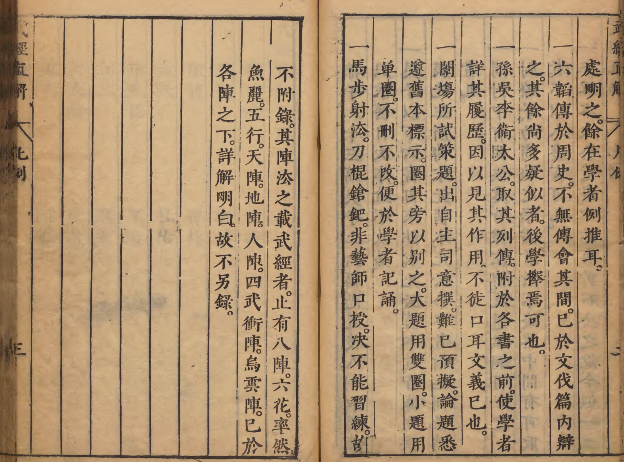 處明之。餘在學者例推耳。
一六韜傳於周史。不無傳會其間。已於文伐篇内辯
之。其餘尚多疑似者。後學擇焉可也。
一孫吳李衛太公。取其列傳。附於各書之前。使學者
詳其履歷。因以見其作用不徒口耳文義已也。
一闈塲所試策題。出自主司意撰。難已預擬。論題悉
遵舊本標示。圈其旁以別之。大題用雙圈。小題用
单圈。不刪不攺。便於學者記誦。
一馬步射法。刀棍鎗鈀。非藝師口授。决不能習練。故
不附錄。其陣法之載武經者。止有八陣。六花。率然
魚麗。五行。天陣。地陣。人陣。四武衝陣。烏雲陣。已於
各陣之下。詳解明白。故不另錄。
武經直解
凡例
三